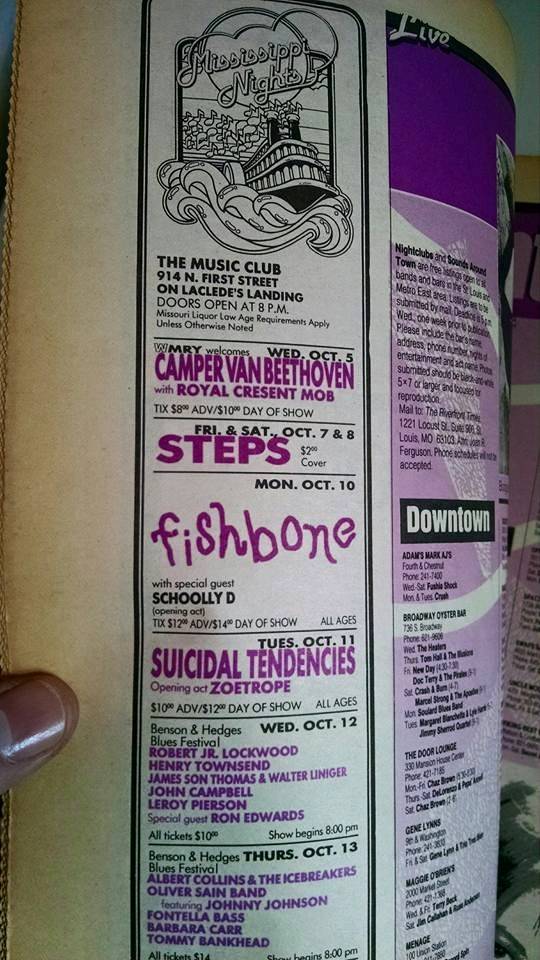 Mississippi
Nights
THE MUSIC CLUB
914 N. FIRST STREET
ON LACLEDE'S LANDING
DOORS OPEN AT 8 P.M.
Missouri Liquor Law Age Requirements Apply
Unless Otherwise Noted
WMRY welcomes WED. OCT. 5
CAMPER VAN BEETHOVEN
with ROYAL CRESENT MOB
TIX $8⁰⁰ ADV/$10⁰⁰ DAY OF SHOW
FRI. & SAT., OCT. 7 & 8
STEPS $2⁰⁰
Cover
MON. OCT. 10
fishbone
with special guest
SCHOOLLY D
(opening act)
TIX $12⁰⁰ ADV/$14⁰⁰ DAY OF SHOW ALL AGES
TUES. OCT. 11
SUICIDAL TENDENCIES
Opening act ZOETROPE
$10⁰⁰ ADV/$12⁰⁰ DAY OF SHOW ALL AGES
Benson & Hedges WED. OCT. 12
Blues Festival
ROBERT JR. LOCKWOOD
HENRY TOWNSEND
JAMES SON THOMAS & WALTER LINIGER
JOHN CAMPBELL
LEROY PIERSON
Special guest RON EDWARDS
All tickets $10⁰⁰ Show begins 8:00 pm
Benson & Hedges THURS. OCT. 13
Blues Festival
ALBERT COLLINS & THE ICEBREAKERS
OLIVER SAIN BAND
featuring JOHNNY JOHNSON
FONTELLA BASS
BARBARA CARR
TOMMY BANKHEAD
All tickets $14 Show begins 8:00 pm
Live
Nightclubs and Sounds Around
Town are free listings open to all
bands and bars in the St. Louis and
Metro East area. Listings are to be
submitted by mail. Deadline is 5 p.m.
Wed., one week prior to publication.
Please include the bar's name,
address, phone number, nights of
entertainment and act name. Photos
submitted should be black-and-white
5×7 or larger and focused for
reproduction.
Mail to: The Riverfront Times,
1221 Locust St., Suite 900, St.
Louis, MO 63103, Attn: Joan R.
Ferguson. Phone schedules will not be
accepted.
Downtown
ADAM'S MARK AJ'S
Fourth & Chestnut
Phone: 241-7400
Wed.-Sat. Fushia Shock
Mon. & Tues. Crush
BROADWAY OYSTER BAR
736 S. Broadway
Phone: 621-9606
Wed. The Heaters
Thurs. Tom Hall & The Illusions
Fri. New Day (4:30-7:30)
Doc Terry & The Pirates
Sat. Crash & Burn (4-7)
Marcel Strong & The Apostles
Mon. Soulard Blues Band
Tues. Margaret Bianchetta &
Jimmy Sherrod Quartet
THE DOOR LOUNGE
330 Mansion House Center
Phone: 421-7185
Mon.-Fri. Chaz Brown
Thurs.-Sat. DeLorenzo &
Sat. Chaz Brown
GENE LYNNS
9th & Washington
Fri. & Sat. Gene Lynn &
MAGGIE O'BRIEN'S
2000 Market Street
Wed. & Fri. Terry Beck
Sat. Jim Callahan &
MENAGE
100 Union Station